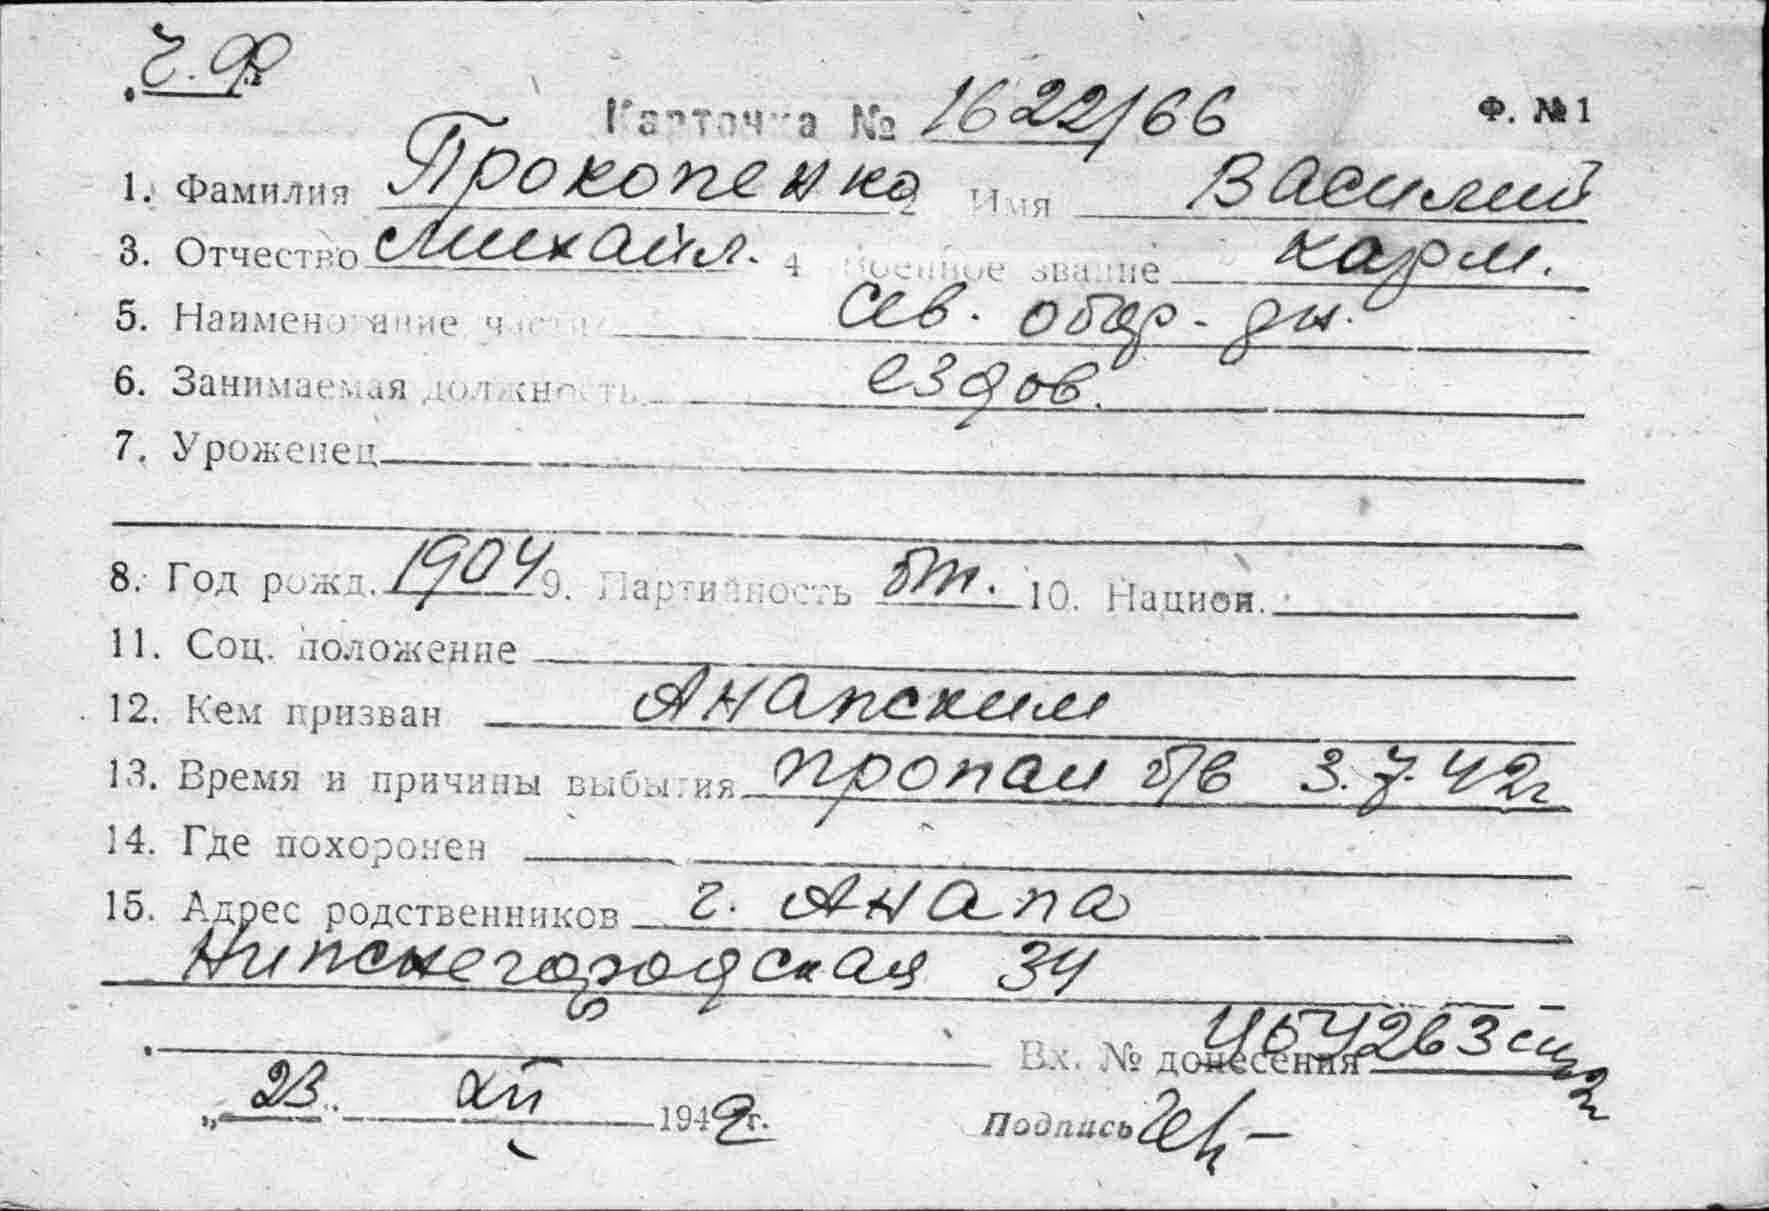 Ч.Ф.
Карточка № 1622/66 Ф. № 1
1. Фамилия Прокопенко 2 Имя Василий
3. Отчество Михайл. 4 Военное звание карм.
5. Наименование части сев. обор. дн.
6. Занимаемая должность ездов.
7. Уроженец
8. Год рожд. 1904 9. Партийность бп. 10. Национ.
11. Соц. положение
12. Кем призван Анапским
13. Время и причины выбытия пропал б/в 3.7.42г
14. Где похоронен
15. Адрес родственников г. Анапа
Нипснегородская 34
Вх. № донесения
„23 XII 1949г. Подпись